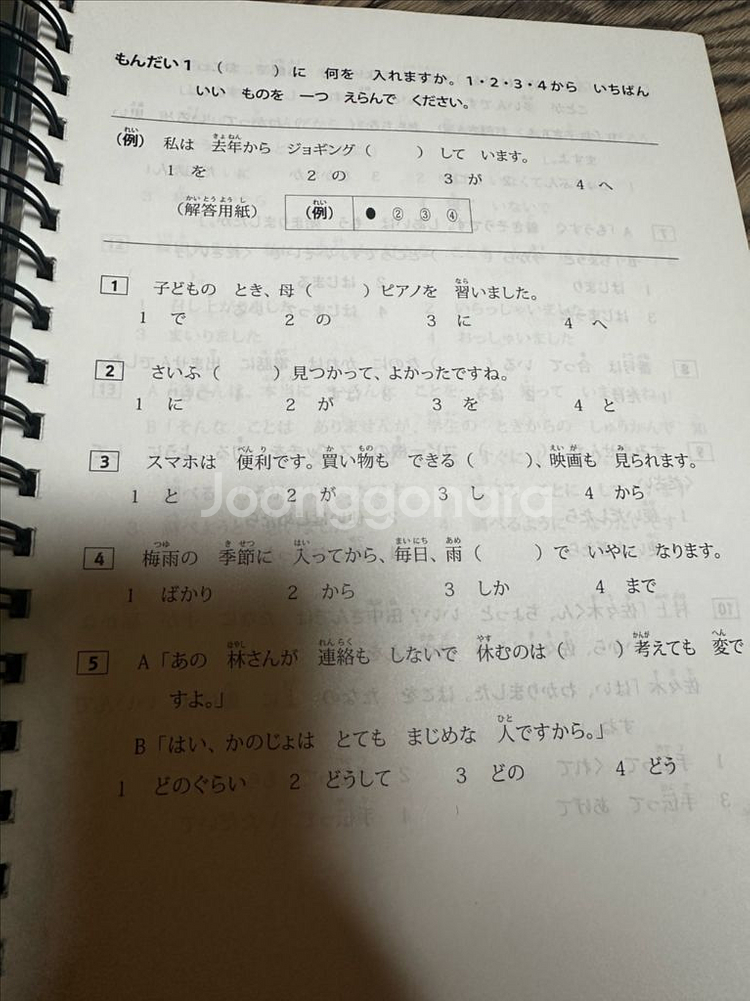 もんだい1 （　　　）に 何を 入れますか。1・2・3・4から いちばん
いい ものを 一つ えらんで ください。
（例） 私は 去年から ジョギング（　　　）して います。
1 を 2 の 3 が 4 へ
（解答用紙） （例） ● ② ③ ④
1 子どもの とき、母（　　　）ピアノを 習いました。
1 で 2 の 3 に 4 へ
2 さいふ（　　　）見つかって、よかったですね。
1 に 2 が 3 を 4 と
3 スマホは 便利です。買い物も できる（　　　）、映画も 見られます。
1 と 2 が 3 し 4 から
Joonggonara
4 梅雨の 季節に 入ってから、毎日、雨（　　　）で いやに なります。
1 ばかり 2 から 3 しか 4 まで
5 A「あの 林さんが 連絡も しないで 休むのは（　　　）考えても 変で
すよ。」
B「はい、かのじょは とても まじめな 人ですから。」
1 どのぐらい 2 どうして 3 どの 4 どう